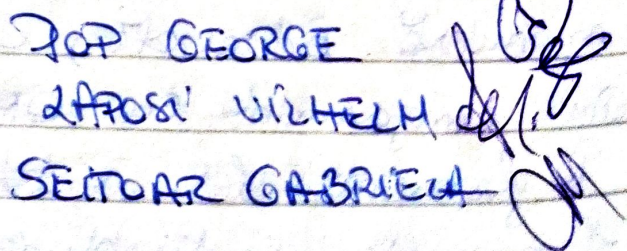 POP GEORGE
LAPOSI VILHELM
SEITOAR GABRIELA